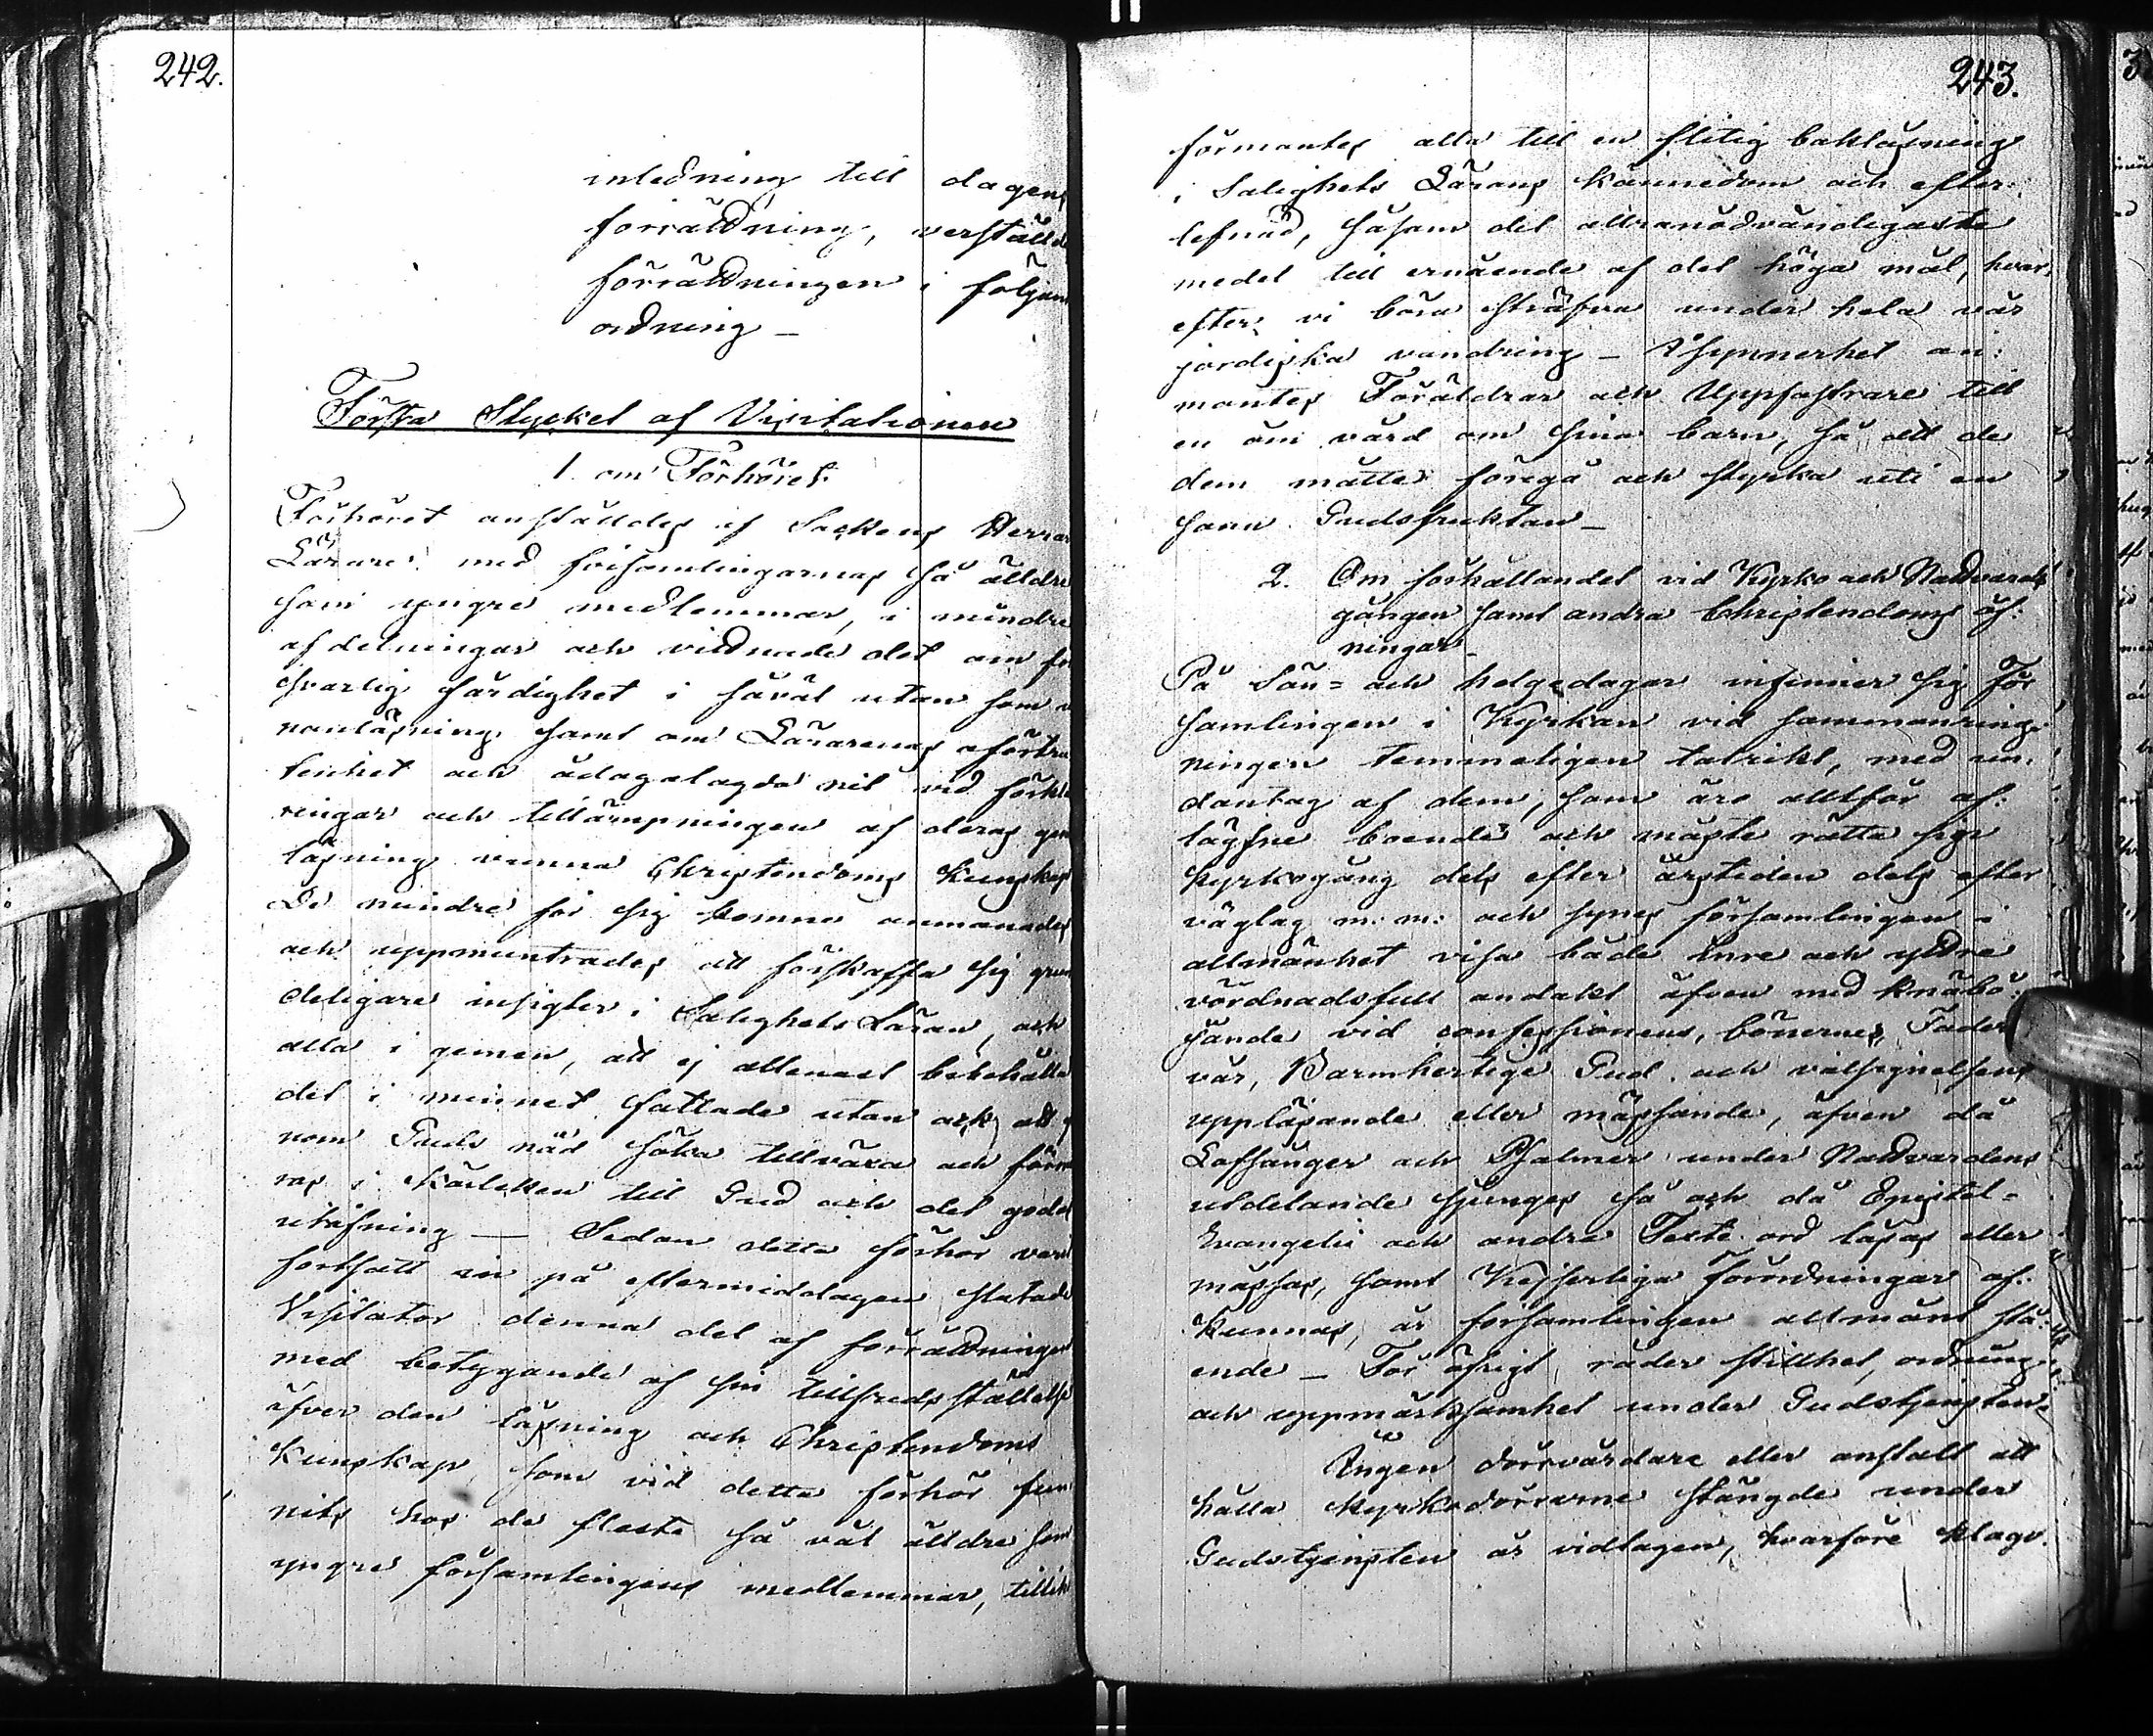 242.
inledning till dagens
förrättning, verställdes
förrättningen i följan
ordning –
Första Stycket af Visitationen
1. om Förhöret.
Förhöret anställdes af Sockens Herrar
Lärare med församlingarnas så älldre
som yngre medlemmar, i mindre
afdelningar och vittnade det om för
svarlig färdighet i såväl utan som in
nanläsning, samt om Lärarenas oförtru
tenhet och ådagalagda nit vid förkla
ringar och tillämpningen af deras genom
läsning vunna Christendoms kunskap
De mindre för sig komna anmanades
och uppmuntrades att förskaffa sig grun
deligare insigter i Salighets Läran, och
alla i gemen, att ej allenast bibehålla
det i minnet fattade utan ock att ge
nom Guds nåd söka tillväxa och förme
ras i kärleken till Gud och det goda
utöfning — Sedan detta förhör varit
fortsatt in på eftermiddagen slutade
Visitator denna del af förrättningen
med betygande af sin tillfredsställelse
öfver den läsning och Christendoms
kunskap som vid detta förhör fun
nits hos de fleste så väl älldre som
yngre församlingens medlemmar, tillika
243.
förmantes alla till en flitig bokläsning
i Salighets Lärans kännedom och efter-
lefnad, såsom det allranödvändigaste
medel till ernående af det höga mål, hvar-
efter vi böra sträfva under hela vår
jordiska vandring – I synnerhet an-
mantes Föräldrar och Uppfostrare till
en öm vård om sina barn, så att de
dem måtte föregå och styrka uti en
sann Gudsfruktan –
2. Om förhållandet vid Kyrko och Nattvards
gången samt andra Christendoms öf-
ningar –
På Sön= och helgedagar infinner sig För
samlingen i Kyrkan vid sammanring-
ningen temmeligen talrikt, med un-
dantag af dem, som äro alltför af-
lägsne boende och måste rätta sin
kyrkogång dels efter årstiden dels efter
väglag m. m. och synes församlingen i
allmänhet visa både inre och yttre
vördnadsfull andakt äfven med knäbö-
jande vid confessionens, bönernes, Fader
vår, Barmhertige Gud och välsignelsens
uppläsande eller mässande, äfven då
Lofsånger och Psalmer under Nattvardens
utdelande sjunges så och då Epistel-
Evangelii och andra Texte ord läsas eller
mässas, samt Kejserliga Förordningar af-
kunnas, är församlingen allmänt stå-
ende – För öfrigt råder stillhet, ordning
och uppmärksamhet under Gudstjensten.
Ingen dörrvärdare eller anstalt att
hålla kyrkodörrarne stängde under
Gudstjensten är vidtagen, hvarföre klago-